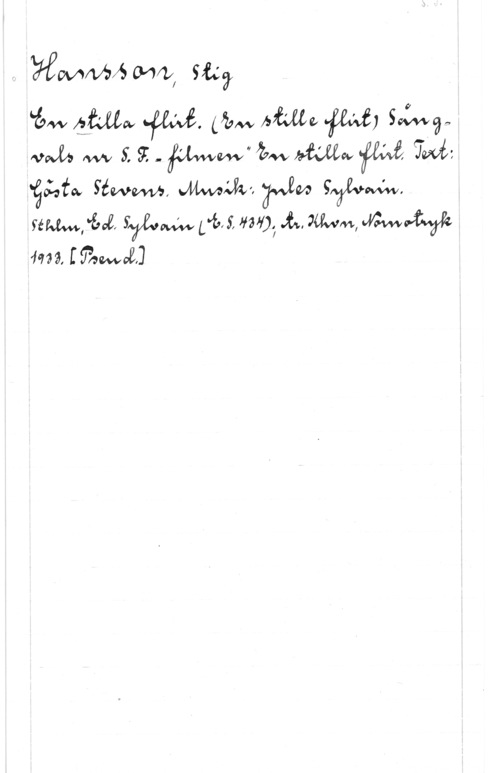 Hansson, Stig
En stilla flirt. (En stille flirt) Sång-
vals ur S. F. - filmen "En stilla flirt. Text:
Gösta Stevens. Musik: Jules Sylvain.
Sthlm, Ed. Sylvain (E. S. 434); tr. Khvn, Nomotryk
1933. [Pseud.]